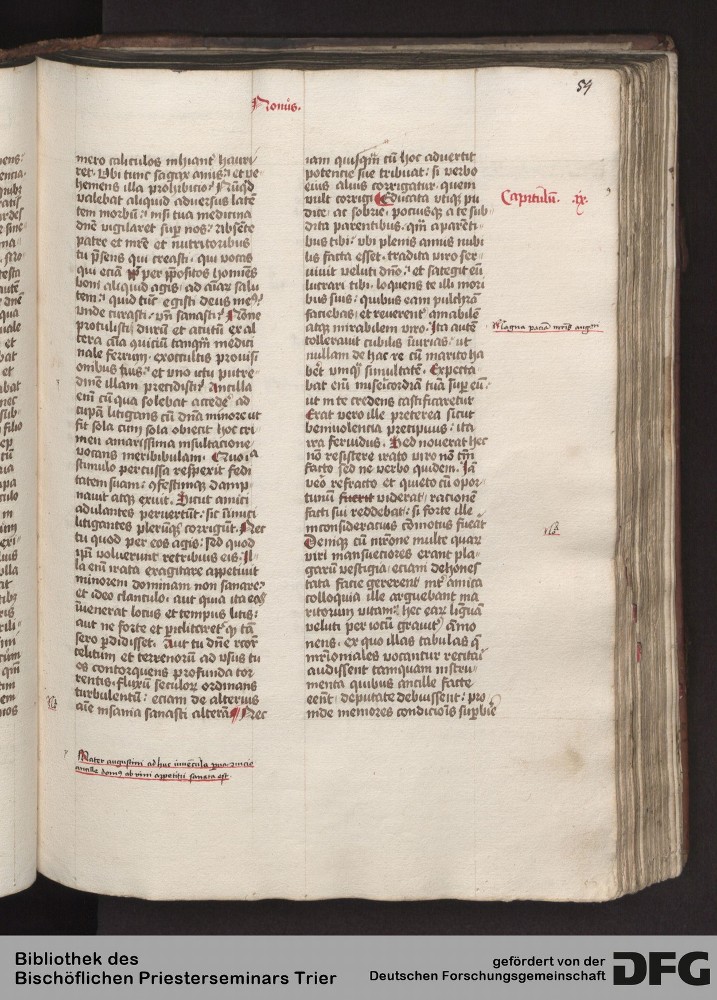 59
Nonus.
mero caliculos inhiant hauri
ret. Vbi tunc sagax anus: et ve
hemens illa prohibicio? Nūqd
valebat aliquid adversus laten
tem morbū: nisi tua medicina
dñe vigilaret sup nos? Absēte
patre et mr̄e et nutritoribus
tu p̄sens qui creasti. qui vocas
qui eciā per p̄positos homīes
boni aliquid agis ad aīar salu
tem: quid tūc egisti deus me?
Vnde curasti? vn̄ sanasti? Nōne
protulisti durū et acutū ex al
tera aīa quiciū tanqm̄ medici
nale ferrum. ex occultis provisi
onibus tuis: et vno ictu putre
dinē illam precidisti? Ancilla
em̄ cū qua solebat accedē ad
cupā litigans cū dn̄a minore ut
fit sola cum sola obiecit hoc cri
men amarissima insultacione
vocans meribibulam. Quo ia
stimulo percussa respexit fedi
tatem suam: ꝯfestimqꝫ damp
navit atqꝫ exuit. Sicut amici
adulantes pervertūt: sic inīici
litigantes plerūqꝫ corrigūt. Nec
tu quod per eos agis: sed quod
ip̄i voluerunt retribuis eis. Il
la em̄ irata exagitare appetiuit
minorem dominam non sanare:
et ideo clanculo: aut quia ita eos
īuenerat locus et tempus litis:
aut ne forte et ip̄a periclitaret qꝫ tā
sero ꝓdidisset. At tu dn̄e rcōr
celitum et terrenorū ad vsus tu
os contorquens profunda tor
rentis. fluxū seculorꝝ ordinans
turbulentū: eciam de alterius
aīe insania sanasti alterā. Nec
Mater augustini ad huc iuuēcula
ancille domꝰ ab vini appetitu sanata est.
iam quisqm̄ cū hoc advertit
potencie sue tribuat: si verbo
eius alius corrigatur. quem
vult corrigi. Educata vtiqꝫ pu
dice: ac sobrie. pociusqꝫ a te sub
dita parentibus. qm̄ a parēti
bus tibi: vbi plenis annis nubi
lis facta esset. tradita viro ser
viuit veluti dn̄o: et sategit eū
lucrari tibi. loquens te illi mori
bus suis: quibus eam pulchrā
faciebas: et reverenter amabilē
atqꝫ mirabilem viro. Ita autē
tollerauit cubilis iniurias: ut
nullam de hac re cū marito ha
bēt vmqꝫ simultatē. Expecta
bat em̄ misericordiā tuā suꝑ eū.
ut in te credens castificaretur
Erat vero ille preterea sicut
benivolencia precipuus: ita
ira fervidus. Sed noverat hec
nō resistere irato viro nō tm̄
facto sed ne verbo quidem. Iā
veō refracto et quieto cū opor
tunū fuerit viderat: racionē
facti sui reddebat: si forte ille
inconsideracius cōmotus fuerat
Denique cū matrone multe quarꝝ
viri mansueciores erant pla
garū vestigia: eciam dehones
tata facie gererent: int amica
colloquia ille arguebant ma
ritorum vitam: hec earꝝ liguā
veluti ꝑ iocū gravitꝰ ad mo
nens. ex quo illas tabulas q̄
mr̄imoniales vocantur recitari
audissent tamquam instru
menta quibus ancille facte
eēnt: deputare debuissent: pro
inde memores condicionis suꝑbie
Capitulum .ix.
Magna paciēcia mr̄is augus
Bibliothek des
Bischöflichen Priesterseminars Trier
gefördert von der
Deutschen Forschungsgemeinschaft
DFG